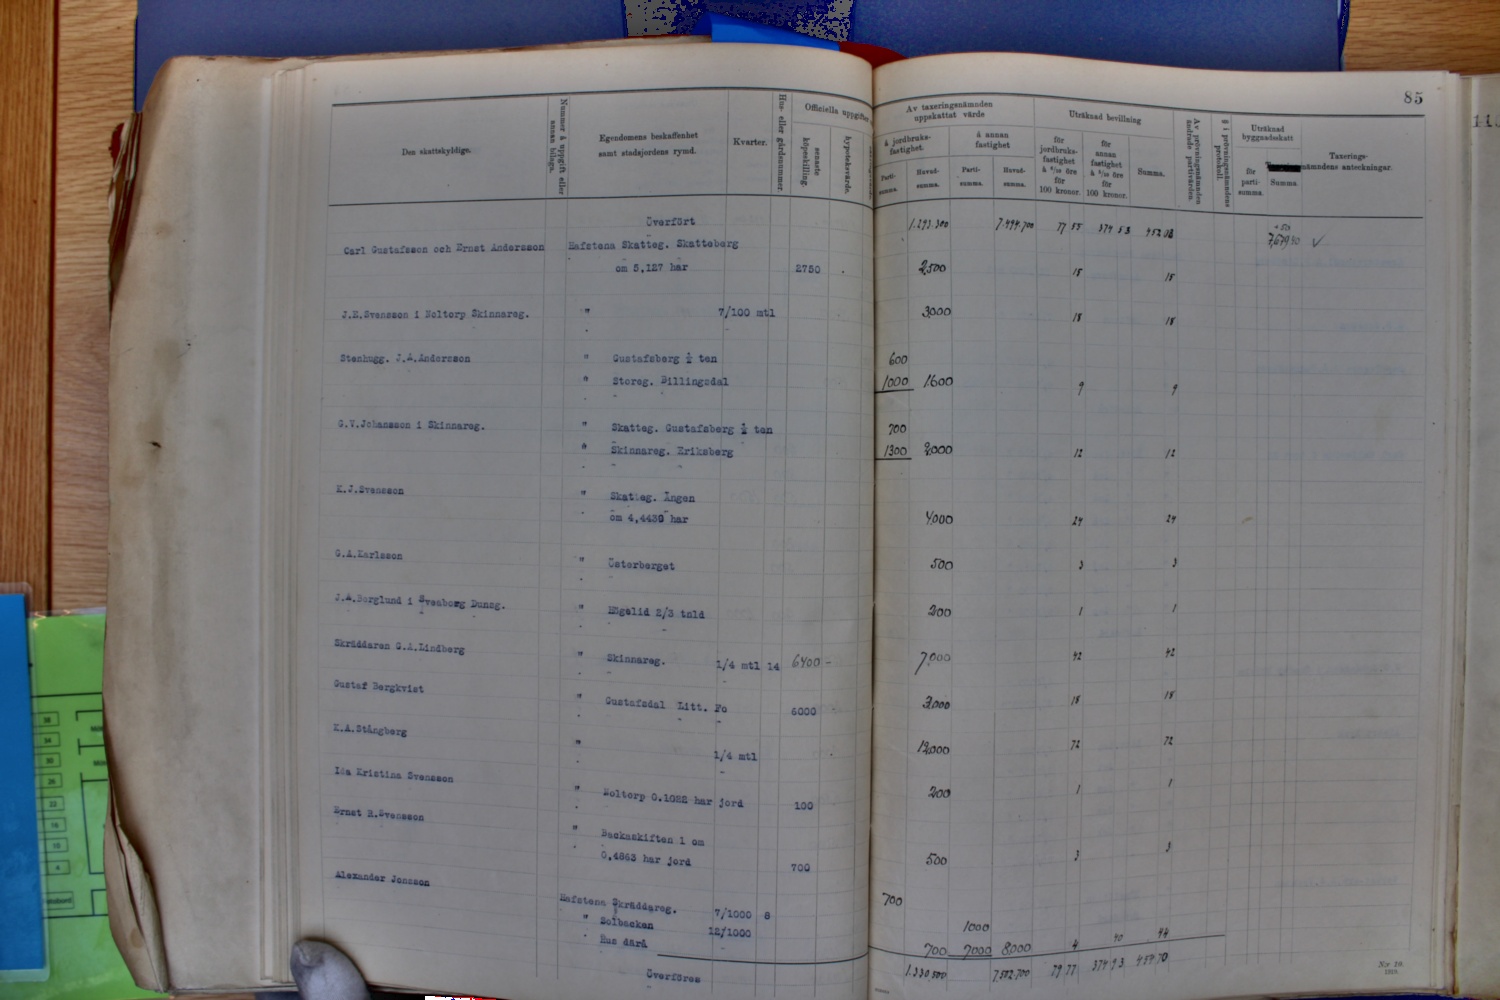 85
Den skattskyldige.
Nummer å uppgift eller annan bilaga.
Egendomens beskaffenhet samt stadsjordens rymd.
Kvarter.
Hus- eller gårdsnummer.
Officiella uppgifter
senaste köpeskilling.
hypoteksvärde.
Av taxeringsnämnden uppskattat värde
å jordbruks-fastighet.
å annan fastighet
Parti-summa.
Huvud-summa.
Parti-summa.
Huvud-summa.
Uträknad bevillning
för jordbruks-fastighet å 6/10 öre för 100 kronor.
för annan fastighet å 5/10 öre för 100 kronor.
Summa.
Av prövningsnämnden ändrade partivärden.
§ i prövningsnämndens protokoll.
Uträknad byggnadsskatt
för parti-summa.
Summa.
Taxeringsnämndens anteckningar.
Överfört 1.293.300 7.494.700 77 55 374 53 452 08
Carl Gustafsson och Ernst Andersson Hafstena Skatteg. Skatteberg
om 5,127 har 2750 2,500 15 15
J.R.Svensson i Noltorp Skinnareg. " 7/100 mtl 3,000 18 18
Stenhugg. J.A.Andersson " Gustafsberg ½ ten 600
" Storeg. Billingsdal 1000 1,600 9 9
G.V.Johansson i Skinnareg. " Skatteg. Gustafsberg ½ ten 700
" Skinnareg. Eriksberg 1300 2,000 12 12
K.J.Svensson " Skatteg. Ängen
om 4,4430 har 4,000 24 24
G.A.Karlsson " Österberget 500 3 3
J.A.Berglund i Svenborg Dunsg. " Högelid 2/3 tnld 200 1 1
Skräddaren G.A.Lindberg " Skinnareg. 1/4 mtl 14 6400 - 7,000 42 42
Gustaf Bergkvist " Gustafsdal Litt. Fo 6000 3,000 18 18
K.A.Stångberg " 1/4 mtl 12,000 72 72
Ida Kristina Svensson " Noltorp 0.1022 har jord 100 200 1 1
Ernst R.Svensson " Backaskiften 1 om
0,4863 har jord 700 500 3 3
Alexander Jonsson
Hafstena Skräddareg. 7/1000 8 700
" Solbacken 12/1000 1000
" Hus därå 700 7000 8,000 4 40 44
Överföres 1.330.500 7.502.700 79 77 374 93 454 70
N:r 19.